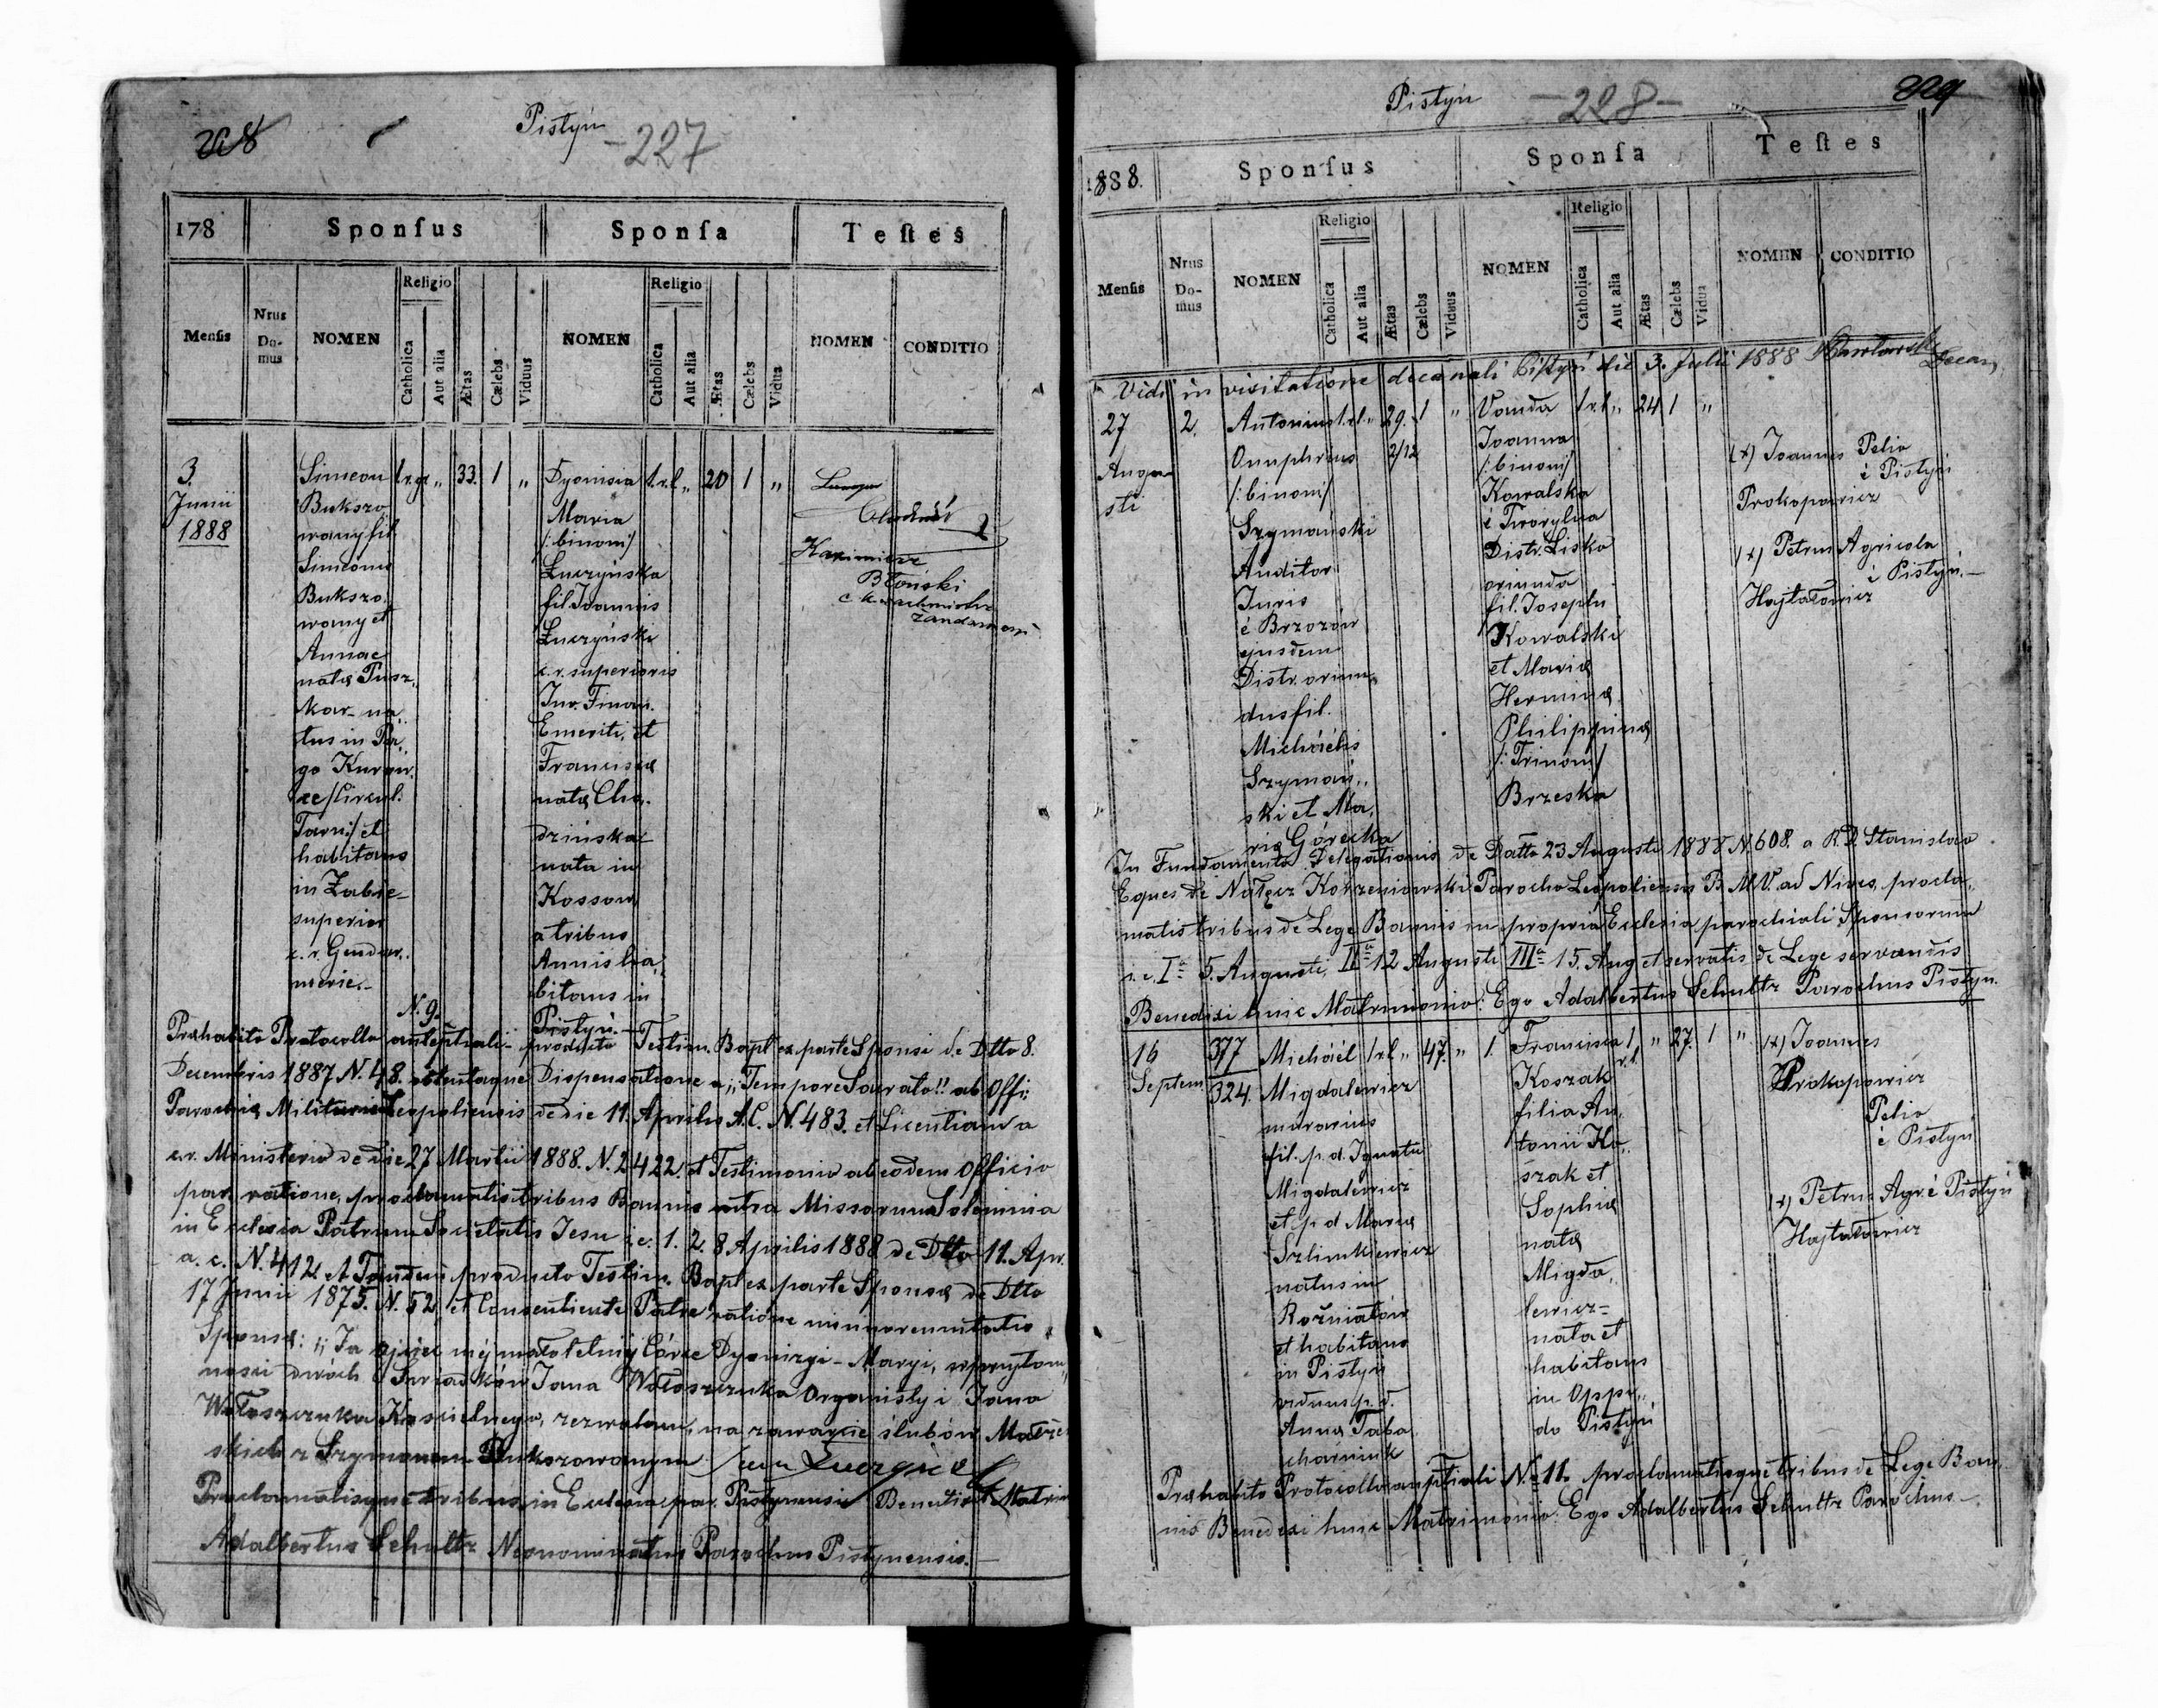 Pistyń
228
-227
178
Sponſus
Sponſa
Teſtes
Menſis
Nrus Do-mus
NOMEN
Religio
Catholica
Aut alia
Ætas
Cælebs
Viduus
NOMEN
Religio
Catholica
Aut alia
Ætas
Cælebs
Vidua
NOMEN
CONDITIO
3.
Junii
1888
Simeon 1 r.gr „ 33. 1 „
Bukszo
wany fil.
Simeonis
Bukszo
wany et
Annae
natæ Pusz„
kar- na„
tus in Pa„
go Kuron
ce /:Circul.
Tarn:/ et
habitans
in Żabie-
superior
c. r. Gendar„
merie.-
Dyonisia 1.r.l „ 20 1 „
Maria
/:binom:/
Łuczyńska
fil. Joannis
Łuczyński
c. r. superioris
Inv. Finan.
Emeriti, et
Francisca
natæ Cho„
dzińska
nata in
Kossow,
a tribus
Annis ha„
bitans in
Pistyń.-
Kazimierz
Błoński
N. 9.
Præhabito Protocollo anteptiali- producto Testim. Bapt ex parte Sponsi de Dtto 8.
Decembris 1887 N. 48. obtentaque Dispensatione a „Tempore Sacrato!! ab Offi:
Parochiæ Militaris Leopoliensis de die 11. Aprilis A.C. N. 483. et Licentiam a
c.r. Ministerio de die 27 Martii 1888. N. 2422. et Testimonio ab eodem Officio
par. ratione, proclamatis tribus Bannis intra Missarum Solemnia
in Ecclesia Patrum Societatis Jesu i.e. 1. 2. 8 Aprilis 1888 de Dtto 11. Apr.
a. c. N. 412. et Tandem producto Testim. Bapt ex parte Sponsæ de Dtto
17 Junii 1875. N. 52, et Consentiente Patre ratione minorennitatis
Sponsæ: „Ja ojciec méj małoletniéj Córce Dyonizyi - Maryi, w przytom„
ności dwóch Świadków Jana Wołoszczuka Organisty i Jana
Wołoszczuka Kościelnego, zezwalam, na zawarcie ślubów Małżeń
skich z Szymonem Bukszowanym
Proclamatisque tribus in Ecclesia par. Pistynensi Benedixit Matrim
Adalbertus Schultz Neonominatus Parochus Pistynensis.-
Pistyń
-228-
229
1888.
Sponſus
Sponſa
Teſtes
Menſis
Nrus Do-mus
NOMEN
Religio
Catholica
Aut alia
Ætas
Cælebs
Viduus
NOMEN
Religio
Catholica
Aut alia
Ætas
Cælebs
Vidua
NOMEN
CONDITIO
Vidi in visitatione decanali Pistyń die 3. Julii 1888 Decan,
27
Augu
sti
2.
Antonius 1.r.l. „ 29. 1 „
Onuphrius 2/12
/:binom:/
Szymański
Auditor
Juris
è Brzozów
ejusdem
Distr. oriun„
dus fil.
Michäelis
Szymań„
ski et Ma„
riæ Górecka
Vanda 1 r.l „ 24 1 „
Joanna
/:binom:/
Kowalska
è Tworylna
Distr. Lisko
oriunda
fil. Josephi
Kowalski
et Mariæ
Herminæ
Philippinæ
/:Trinom:/
Brzeska
(+) Joannes Pelio
è Pistyń
Prokopowicz
(+) Petrus Agricola
è Pistyń.-
Hajtałowicz
In Fundamento Delegationis de Datto 23 Augusti 1888 N. 608. a R.D. Stanislao
Eques de Nałęcz Korzeniowski Parocho Leopoliensis B.M.V. ad Nives, procla„
matis tribus de Lege Bannis in propria Ecclesia parochiali Sponsorum
i.e. Iª 5. Augusti, IIª 12 Augusti IIIª 15. Aug et servatis de Lege servandis
Benedixi hunc Matrimonio: Ego Adalbertus Schultz Parochus Pistyn.
16
Septem.
377
324.
Michäel 1 r.l „ 47. „ 1.
Migdalewicz
murarius
fil. p. d. Ignatii
Migdalewicz
et p. d Mariæ
Szlimkiewicz
natus in
Rożniatów
et habitans
in Pistyń
viduus p. d.
Anna Taba
charniuk
Francisca 1 „ 27. 1 „
r.l.
Koszak
filia An„
tonii Ko„
szak et
Sophiæ
natæ
Migda„
lewicz-
nata et
habitans
in Oppi„
do Pistyń
(+) Joannes
Prokopowicz
Pelio
è Pistyń
(+) Petrus Agr. è Pistyń
Hajtałowicz
Præhabito Protocollo nuptiali N. 11. proclamatisque tribus de Lege Ban„
nis Benedixi hunc Matrimonio: Ego Adalbertus Schultz Parochus-